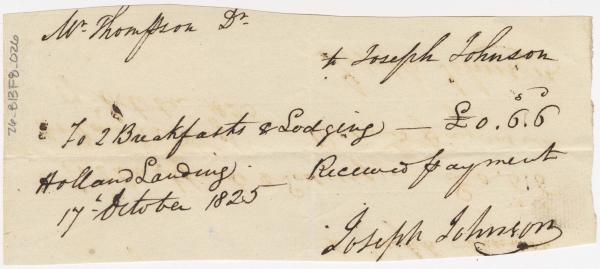 Mr Thompson Dr
to Joseph Johnson
To 2 Breakfasts & Lodging — £0.6.6
Holland Landing Received payment
17th October 1825
Joseph Johnson
76-8BF8-026